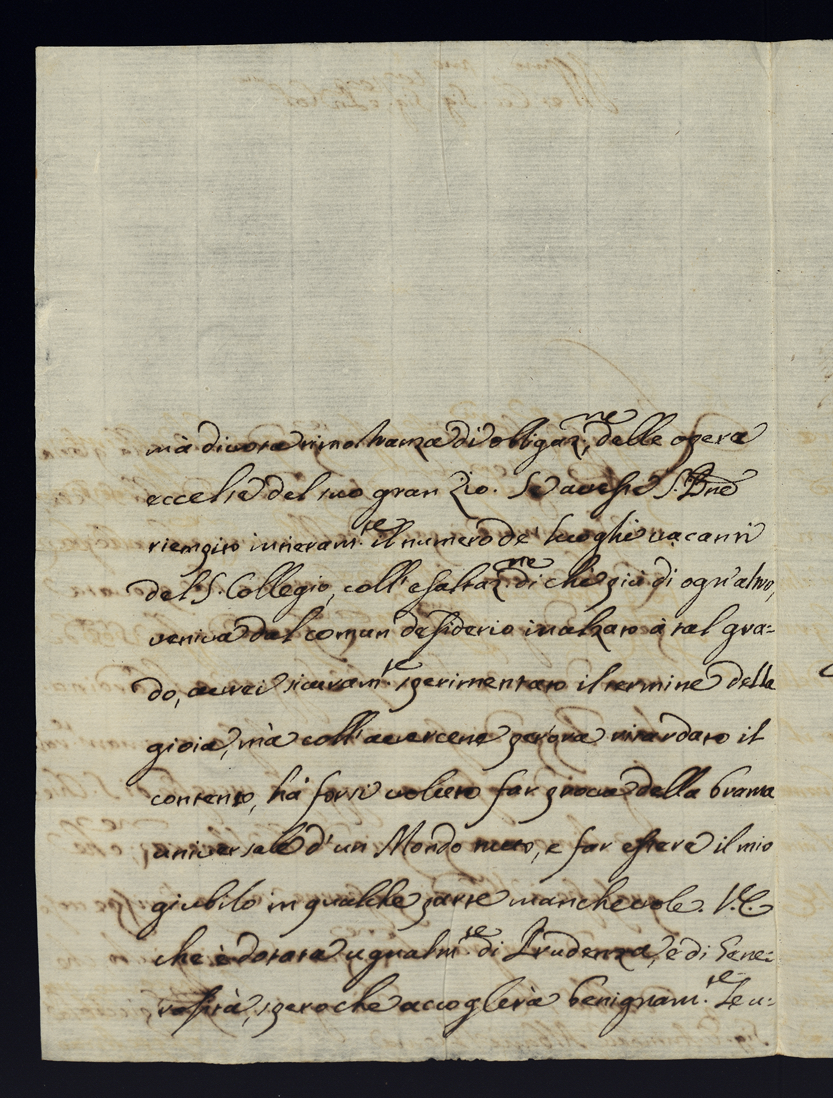 mà divota rimostranza di obligaz.ne, delle opera
eccelse del suo gran Zio. Se avesse S. Bne
riempito intieram.te il numero de' luoghi vacanti
del S. Collegio, coll'esaltaz.ne di chi più di ogn'altro,
veniva dal comun desiderio inalzato à tal gra=
do, averei sicuram.te sperimentato il termine della
gioia, mà coll'avercene per ora ritardato il
contento, hà forsi voluto far prova della brama
universale d'un Mondo tutto, e far essere il mio
giubilo in qualche parte manchevole. V.E.
che è dotata ugualm.te di Prudenza, e di Gene=
rosità, spero che accoglierà benignam.te Le u=